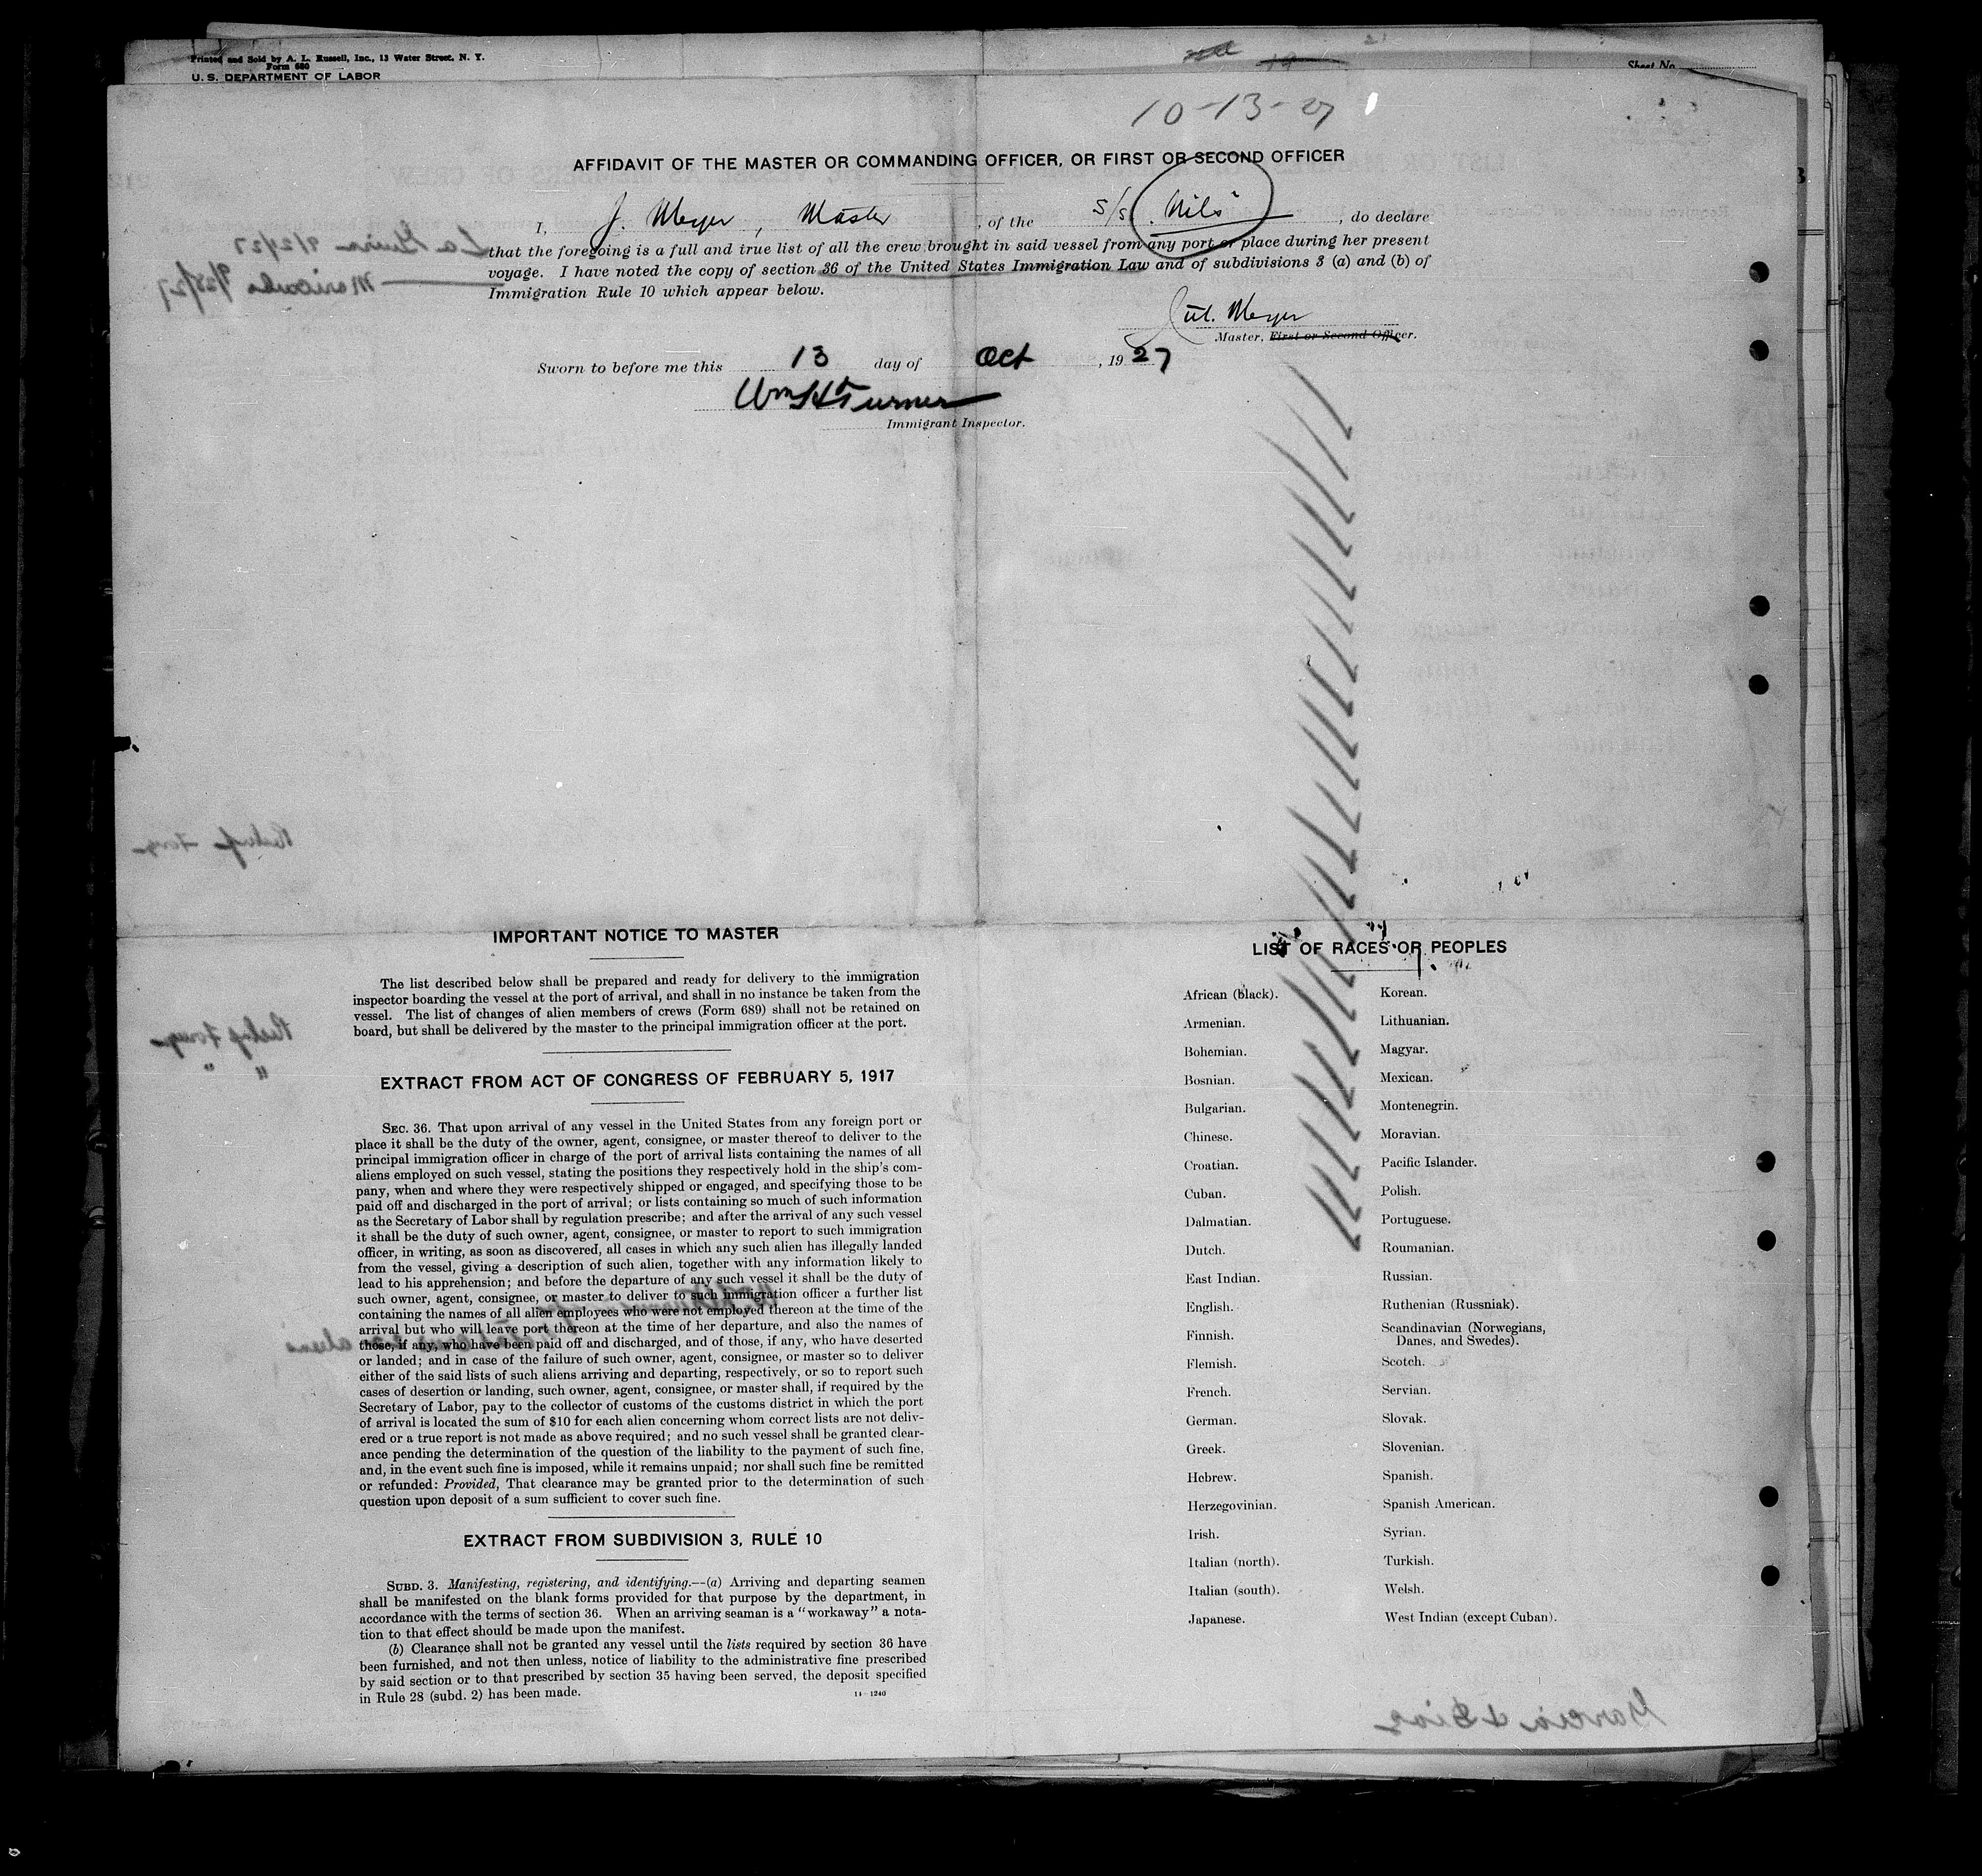 Printed and Sold by A. L. Russell, Inc., 13 Water Street, N. Y.
Form 680
U. S. DEPARTMENT OF LABOR
Sheet No.
10-13-27
AFFIDAVIT OF THE MASTER OR COMMANDING OFFICER, OR FIRST OR SECOND OFFICER
I, J. Meyer, Master, of the S/S "Nils", do declare
that the foregoing is a full and true list of all the crew brought in said vessel from any port or place during her present
voyage. I have noted the copy of section 36 of the United States Immigration Law and of subdivisions 3 (a) and (b) of
Immigration Rule 10 which appear below.
Jul. Meyer
Master, First or Second Officer.
Sworn to before me this 13 day of Oct, 1927
Wm H Turner
Immigrant Inspector.
IMPORTANT NOTICE TO MASTER
The list described below shall be prepared and ready for delivery to the immigration
inspector boarding the vessel at the port of arrival, and shall in no instance be taken from the
vessel. The list of changes of alien members of crews (Form 689) shall not be retained on
board, but shall be delivered by the master to the principal immigration officer at the port.
EXTRACT FROM ACT OF CONGRESS OF FEBRUARY 5, 1917
SEC. 36. That upon arrival of any vessel in the United States from any foreign port or
place it shall be the duty of the owner, agent, consignee, or master thereof to deliver to the
principal immigration officer in charge of the port of arrival lists containing the names of all
aliens employed on such vessel, stating the positions they respectively hold in the ship's com-
pany, when and where they were respectively shipped or engaged, and specifying those to be
paid off and discharged in the port of arrival; or lists containing so much of such information
as the Secretary of Labor shall by regulation prescribe; and after the arrival of any such vessel
it shall be the duty of such owner, agent, consignee, or master to report to such immigration
officer, in writing, as soon as discovered, all cases in which any such alien has illegally landed
from the vessel, giving a description of such alien, together with any information likely to
lead to his apprehension; and before the departure of any such vessel it shall be the duty of
such owner, agent, consignee, or master to deliver to such immigration officer a further list
containing the names of all alien employees who were not employed thereon at the time of the
arrival but who will leave port thereon at the time of her departure, and also the names of
those, if any, who have been paid off and discharged, and of those, if any, who have deserted
or landed; and in case of the failure of such owner, agent, consignee, or master so to deliver
either of the said lists of such aliens arriving and departing, respectively, or so to report such
cases of desertion or landing, such owner, agent, consignee, or master shall, if required by the
Secretary of Labor, pay to the collector of customs of the customs district in which the port
of arrival is located the sum of $10 for each alien concerning whom correct lists are not deliv-
ered or a true report is not made as above required; and no such vessel shall be granted clear-
ance pending the determination of the question of the liability to the payment of such fine,
and, in the event such fine is imposed, while it remains unpaid; nor shall such fine be remitted
or refunded: Provided, That clearance may be granted prior to the determination of such
question upon deposit of a sum sufficient to cover such fine.
EXTRACT FROM SUBDIVISION 3, RULE 10
SUBD. 3. Manifesting, registering, and identifying.—(a) Arriving and departing seamen
shall be manifested on the blank forms provided for that purpose by the department, in
accordance with the terms of section 36. When an arriving seaman is a "workaway" a nota-
tion to that effect should be made upon the manifest.
(b) Clearance shall not be granted any vessel until the lists required by section 36 have
been furnished, and not then unless, notice of liability to the administrative fine prescribed
by said section or to that prescribed by section 35 having been served, the deposit specified
in Rule 28 (subd. 2) has been made.
14—1240
LIST OF RACES OR PEOPLES
African (black).
Armenian.
Bohemian.
Bosnian.
Bulgarian.
Chinese.
Croatian.
Cuban.
Dalmatian.
Dutch.
East Indian.
English.
Finnish.
Flemish.
French.
German.
Greek.
Hebrew.
Herzegovinian.
Irish.
Italian (north).
Italian (south).
Japanese.
Korean.
Lithuanian.
Magyar.
Mexican.
Montenegrin.
Moravian.
Pacific Islander.
Polish.
Portuguese.
Roumanian.
Russian.
Ruthenian (Russniak).
Scandinavian (Norwegians,
Danes, and Swedes).
Scotch.
Servian.
Slovak.
Slovenian.
Spanish.
Spanish American.
Syrian.
Turkish.
Welsh.
West Indian (except Cuban).
Garcia & Diaz